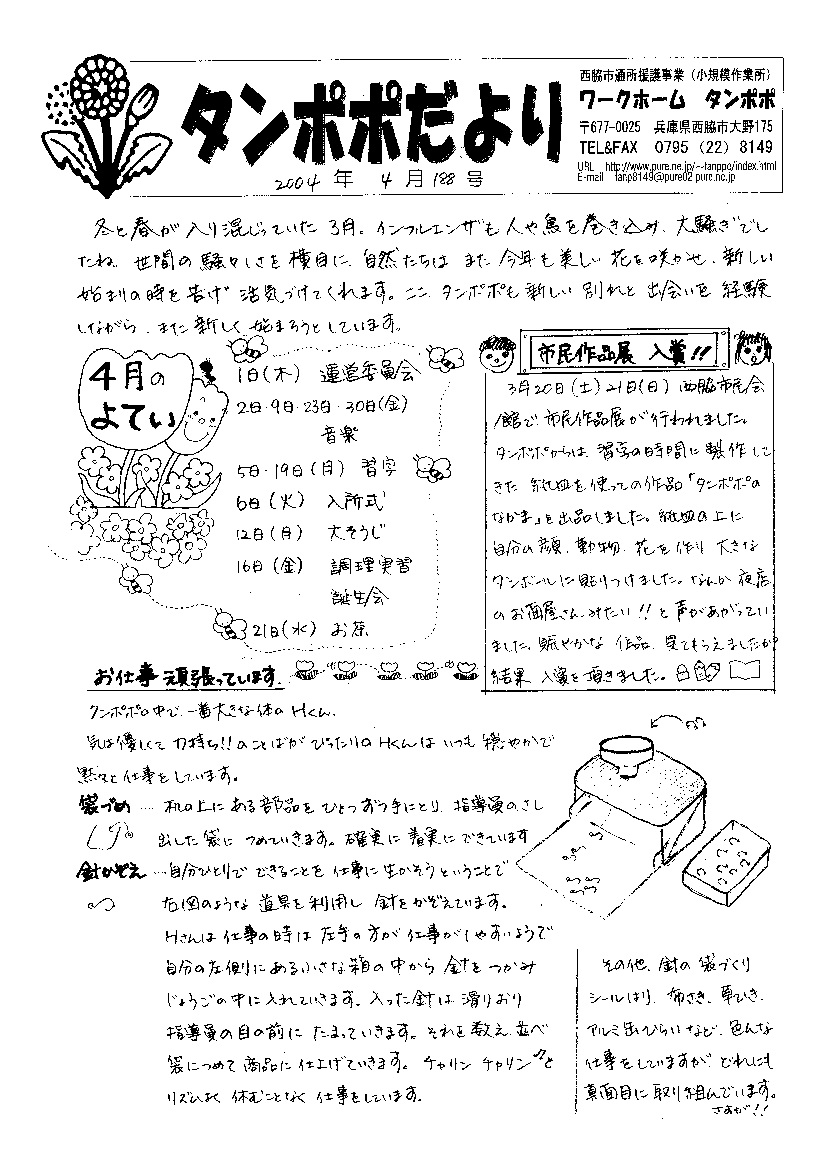 タンポポだより
2004年 4月188号
西脇市通所援護事業（小規模作業所）
ワークホーム タンポポ
〒677-0025 兵庫県西脇市大野175
TEL&FAX 0795（22）8149
URL http://www.pure.ne.jp/~tanppo/index.html
E-mail tanp8149@pure02.pure.ne.jp
冬と春が入り混じっていた3月。インフルエンザも人や鳥を巻き込み、大騒ぎでし
たね。世間の騒々しさを横目に、自然たちは また今年も美しい花を咲かせ、新しい
始まりの時を告げ 活気づけてくれます。ここ、タンポポも新しい別れと出会いを経験
しながら、また新しく始まろうとしています。
4月の
よてい
1日(木) 運営委員会
2日・9日・23日・30日(金)
音楽
5日・19日(月) 習字
6日(火) 入所式
12日(月) 大そうじ
16日(金) 調理実習
誕生会
21日(水) お茶
市民作品展 入賞!!
3月20日(土)21日(日) 西脇市民会
館で、市民作品展が行われました。
タンポポからは、習字の時間に製作して
きた 紙皿を使っての作品「タンポポの
なかま」を出品しました。紙皿の上に
自分の顔、動物、花を作り 大きな
ダンボールに貼りつけました。なんか夜店
のお面屋さんみたい!!と声があがってい
ました。賑やかな作品、見てもらえましたか?
結果 入賞を頂きました。
お仕事 頑張っています
タンポポの中で、一番大きな体のHくん。
気は優しくて力持ち!!のことばがぴったりのHくんは いつも穏やかで
黙々と仕事をしています。
袋づめ … 机の上にある部品をひとつずつ手にとり、指導員のさし
出した袋に つめていきます。確実に着実にできています
針かぞえ … 自分ひとりで できることを仕事に生かそうということで
右図のような 道具を利用し 針をかぞえています。
Hさんは 仕事の時は 左手の方が仕事がしやすいようで
自分の左側にある小さな箱の中から 針をつかみ
じょうごの中に入れていきます。入った針は滑りおり
指導員の目の前に たまっていきます。それを数え、並べ
袋につめて商品に仕上げていきます。チャリン チャリンと
リズムよく 休むことなく 仕事をしています。
その他、針の袋づくり
シールはり、布さき、草ひき、
アルミ缶ひらいなど、色んな
仕事をしていますが、どれにも
真面目に取り組んでいます。
さすが!!